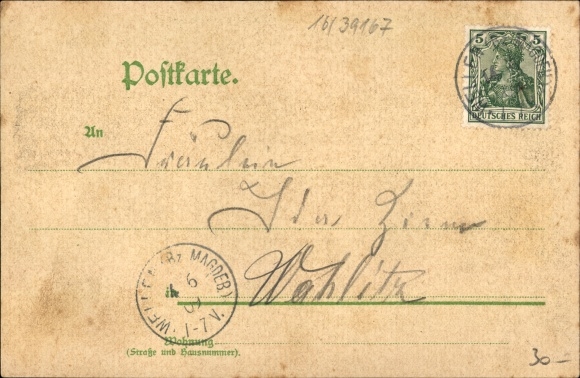 16/39167
5 5
DEUTSCHES REICH
Postkarte.
An
Fräulein
Ida Ziem
in Wahlitz
(Bz MAGDEB.)
6
1-7 V.
Wohnung
(Straße und Hausnummer).
30-